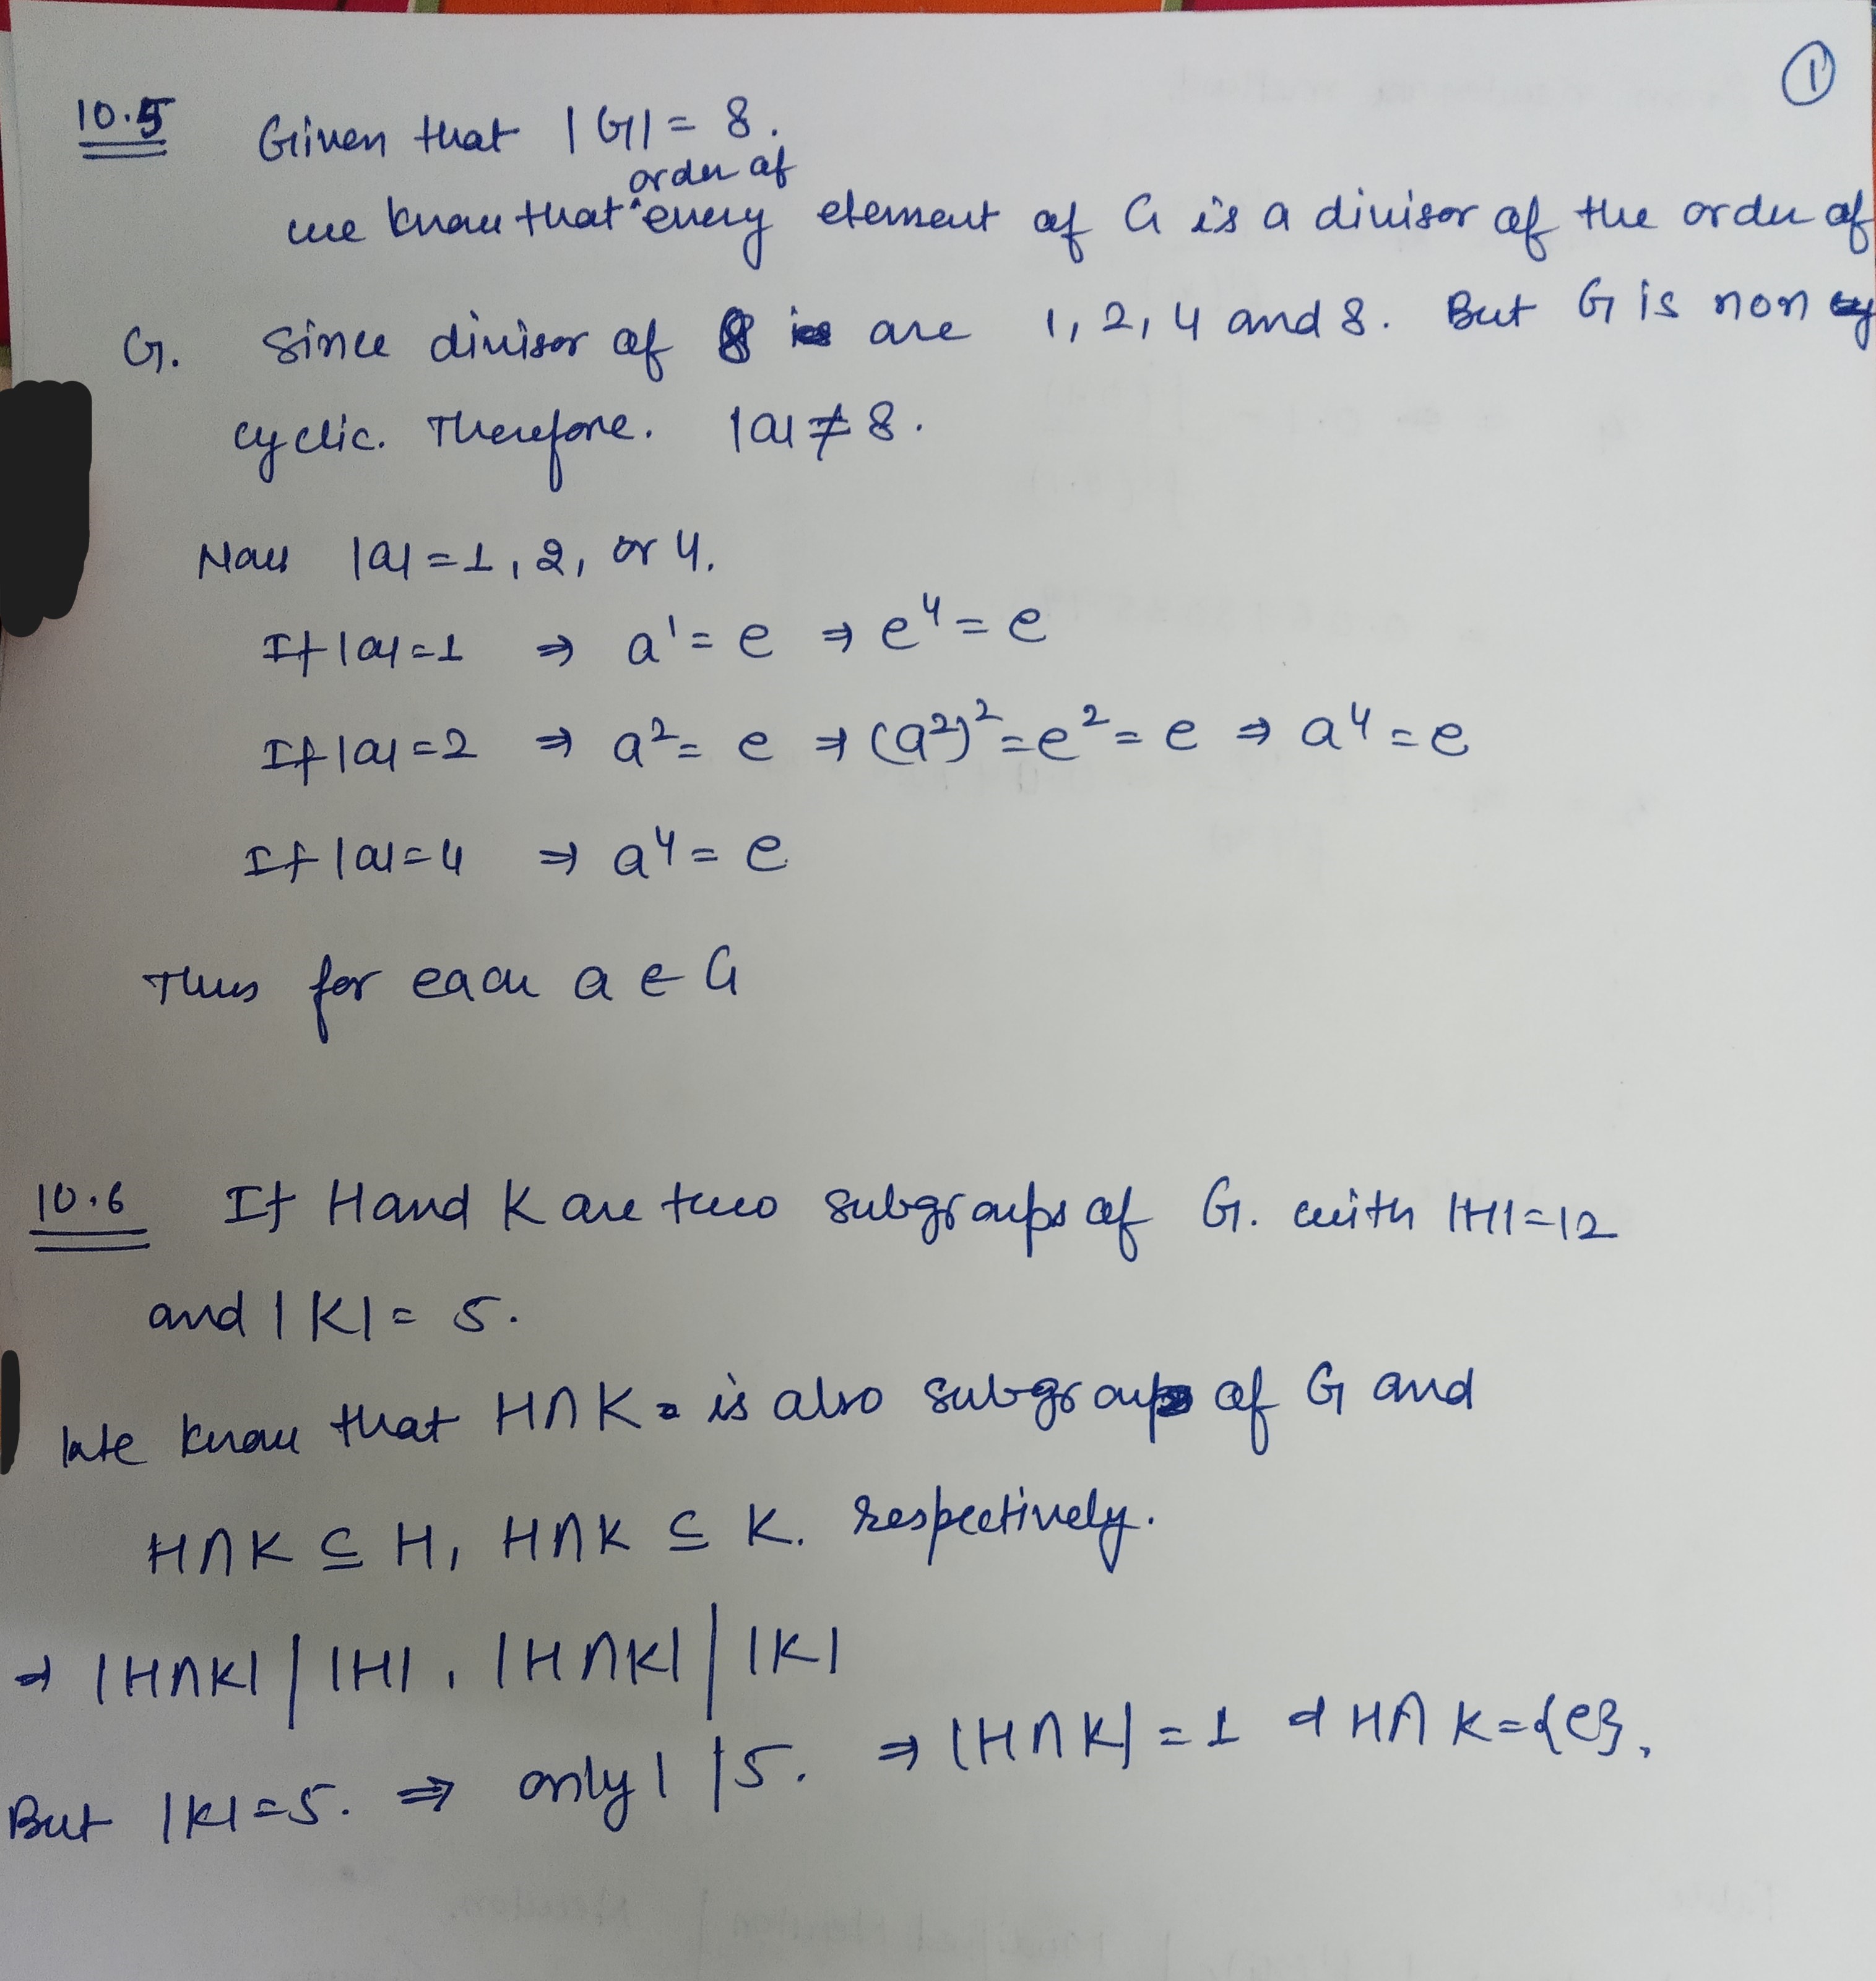 ①
10.5 Given that |G| = 8.
order of
we know that ^ every element of G is a divisor of the order of
G. Since divisor of 8 are 1, 2, 4 and 8. But G is non
cyclic. Therefore. |a| ≠ 8.
Now |a| = 1, 2, or 4.
If |a| = 1 ⇒ a¹ = e ⇒ e⁴ = e
If |a| = 2 ⇒ a² = e ⇒ (a²)² = e² = e ⇒ a⁴ = e
If |a| = 4 ⇒ a⁴ = e
Thus for each a ∈ G
10.6 If H and K are two subgroups of G. with |H| = 12
and |K| = 5.
We know that H∩K is also subgroup of G and
H∩K ⊆ H, H∩K ⊆ K. respectively.
⇒ |H∩K| | |H|, |H∩K| | |K|
But |K| = 5. ⇒ only 1 | 5. ⇒ |H∩K| = 1 ⇒ H∩K = {e},